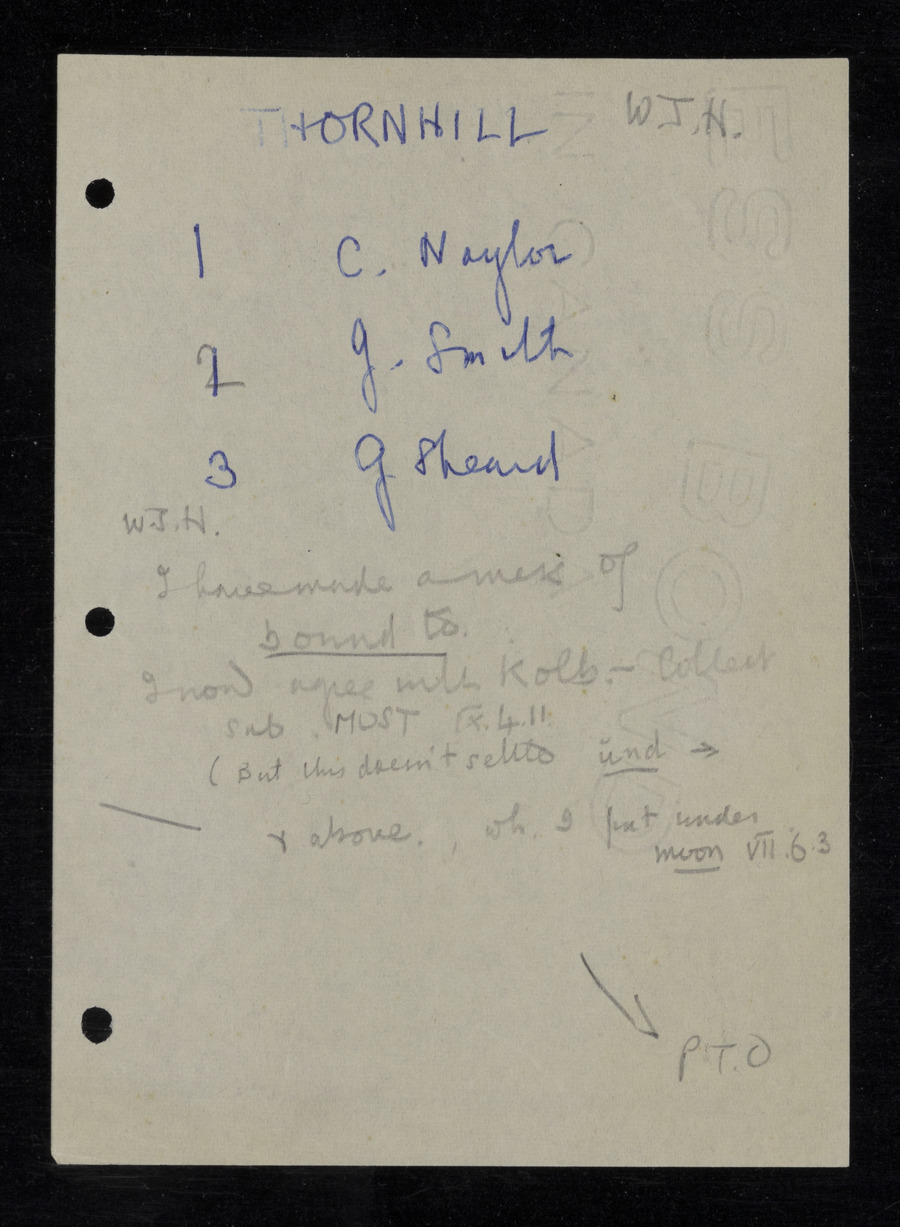 THORNHILL W.J.H.
1 C. Naylor
2 G. Smith
3 G Sheard
W.J.H.
I have made a mess of
bound to.
I now agree with Kolb. – Collect
sub MUST IX.4.11.
(But this doesn't settle und →
& above. , wh. I put under
moon VII.6.3
P.T.O